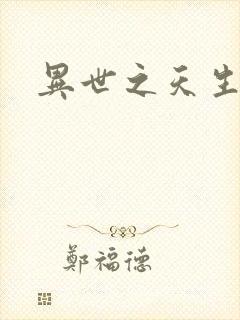 異世之天生
鄭福德